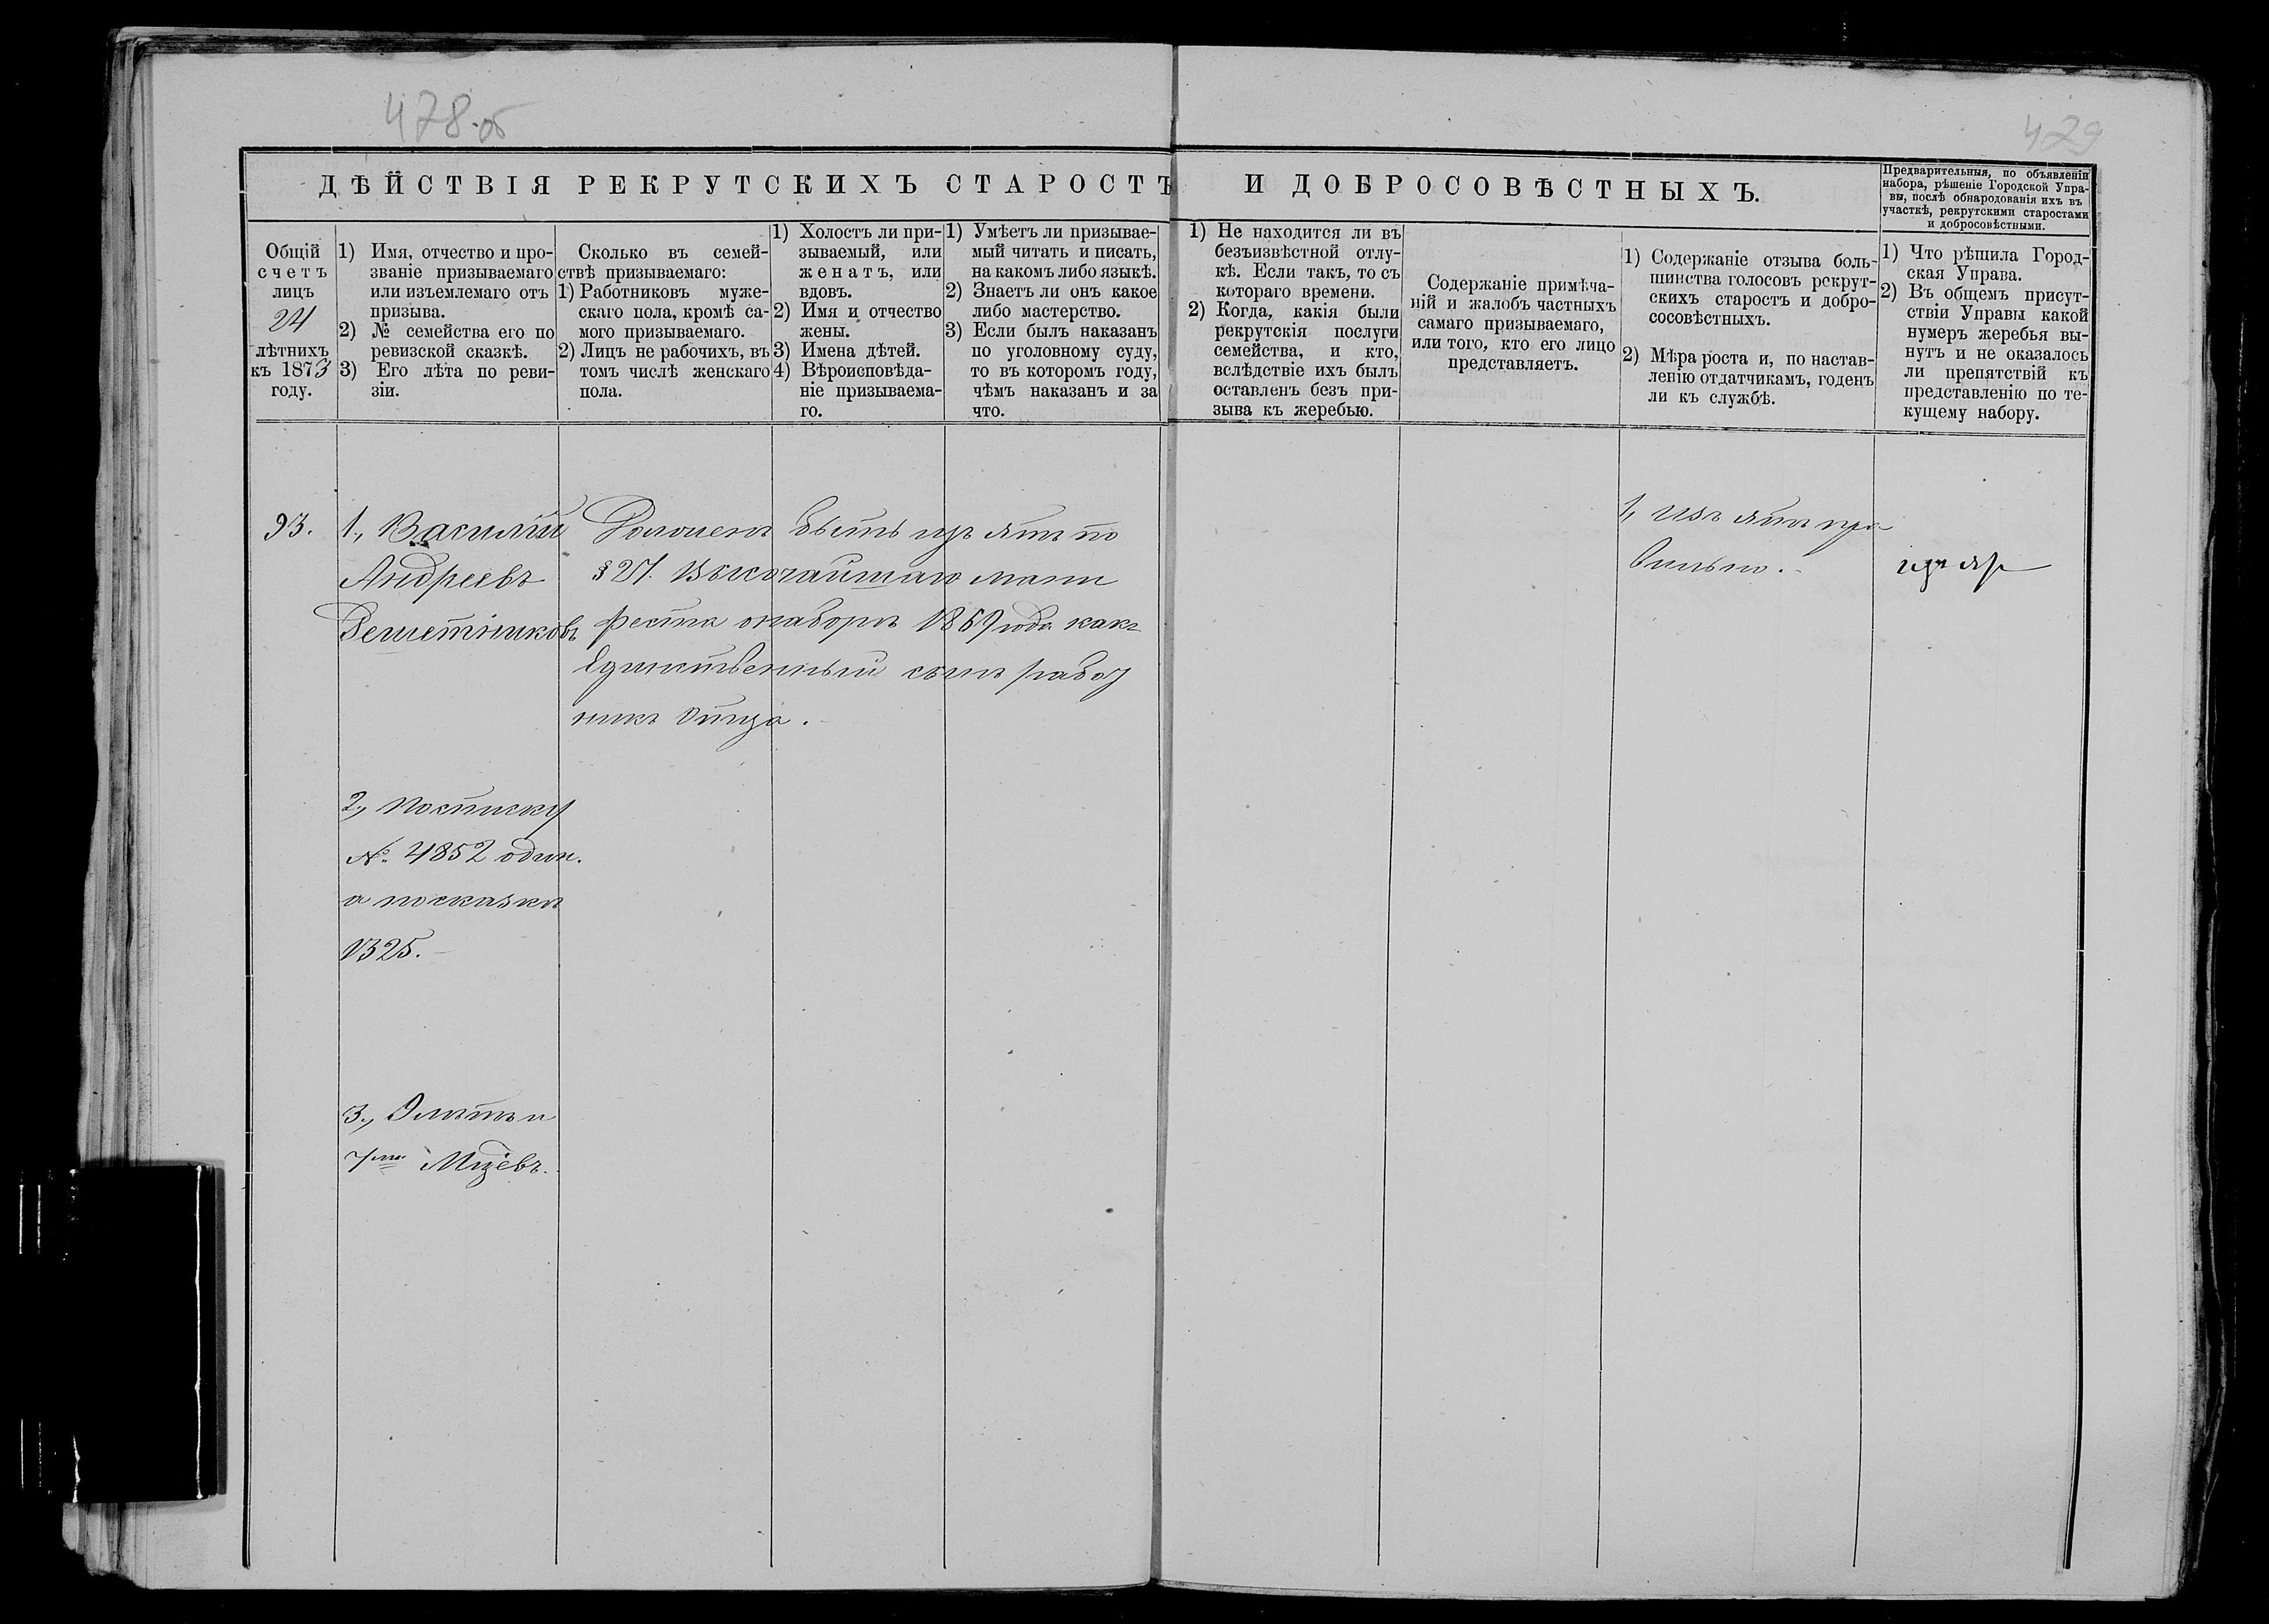 478 об
429
ДѢЙСТВІЯ РЕКРУТСКИХЪ СТАРОСТЪ И ДОБРОСОВѢСТНЫХЪ.
Предварительныя, по объявленіи
набора, рѣшеніе Городской Упра-
вы, послѣ обнародованія ихъ въ
участкѣ, рекрутскими старостами
и добросовѣстными.
Общій
счетъ
лицъ
24
лѣтнихъ
къ 1873
году.
1) Имя, отчество и про-
званіе призываемаго
или изъемлемаго отъ
призыва.
2) № семейства его по
ревизской сказкѣ.
3) Его лѣта по реви-
зіи.
Сколько въ семей-
ствѣ призываемаго:
1) Работниковъ муже-
скаго пола, кромѣ са-
мого призываемаго.
2) Лицъ не рабочихъ, въ
томъ числѣ женскаго
пола.
1) Холостъ ли при-
зываемый, или
женатъ, или
вдовъ.
2) Имя и отчество
жены.
3) Имена дѣтей.
4) Вѣроисповѣда-
ніе призываема-
го.
1) Умѣетъ ли призывае-
мый читать и писать,
на какомъ либо языкѣ.
2) Знаетъ ли онъ какое
либо мастерство.
3) Если былъ наказанъ
по уголовному суду,
то въ которомъ году,
чѣмъ наказанъ и за
что.
1) Не находится ли въ
безъизвѣстной отлу-
кѣ. Если такъ, то съ
котораго времени.
2) Когда, какія были
рекрутскія послуги
семейства, и кто,
вслѣдствіе ихъ былъ
оставленъ безъ при-
зыва къ жеребью.
Содержаніе примѣча-
ній и жалобъ частныхъ
самаго призываемаго,
или того, кто его лицо
представляетъ.
1) Содержаніе отзыва боль-
шинства голосовъ рекрут-
скихъ старостъ и добро-
сосовѣстныхъ.
2) Мѣра роста и, по настав-
ленію отдатчикамъ, годенъ
ли къ службѣ.
1) Что рѣшила Город-
ская Управа.
2) Въ общемъ присут-
ствіи Управы какой
нумеръ жеребья вы-
нутъ и не оказалось
ли препятствій къ
представленію по те-
кущему набору.
93.
1., Василій
Андреевъ
Решетниковъ
2., по списку
№ 4852 один.
а по сказкѣ
1325.
3., 9 лѣтъ и
7 Мцевъ.
Долженъ быть изъятъ по
§ 27. Высочайшаго мани
феста о наборѣ 1869 года какъ
Единственный сынъ работ
никъ Отца.
1, Изъятъ пра
вильно.